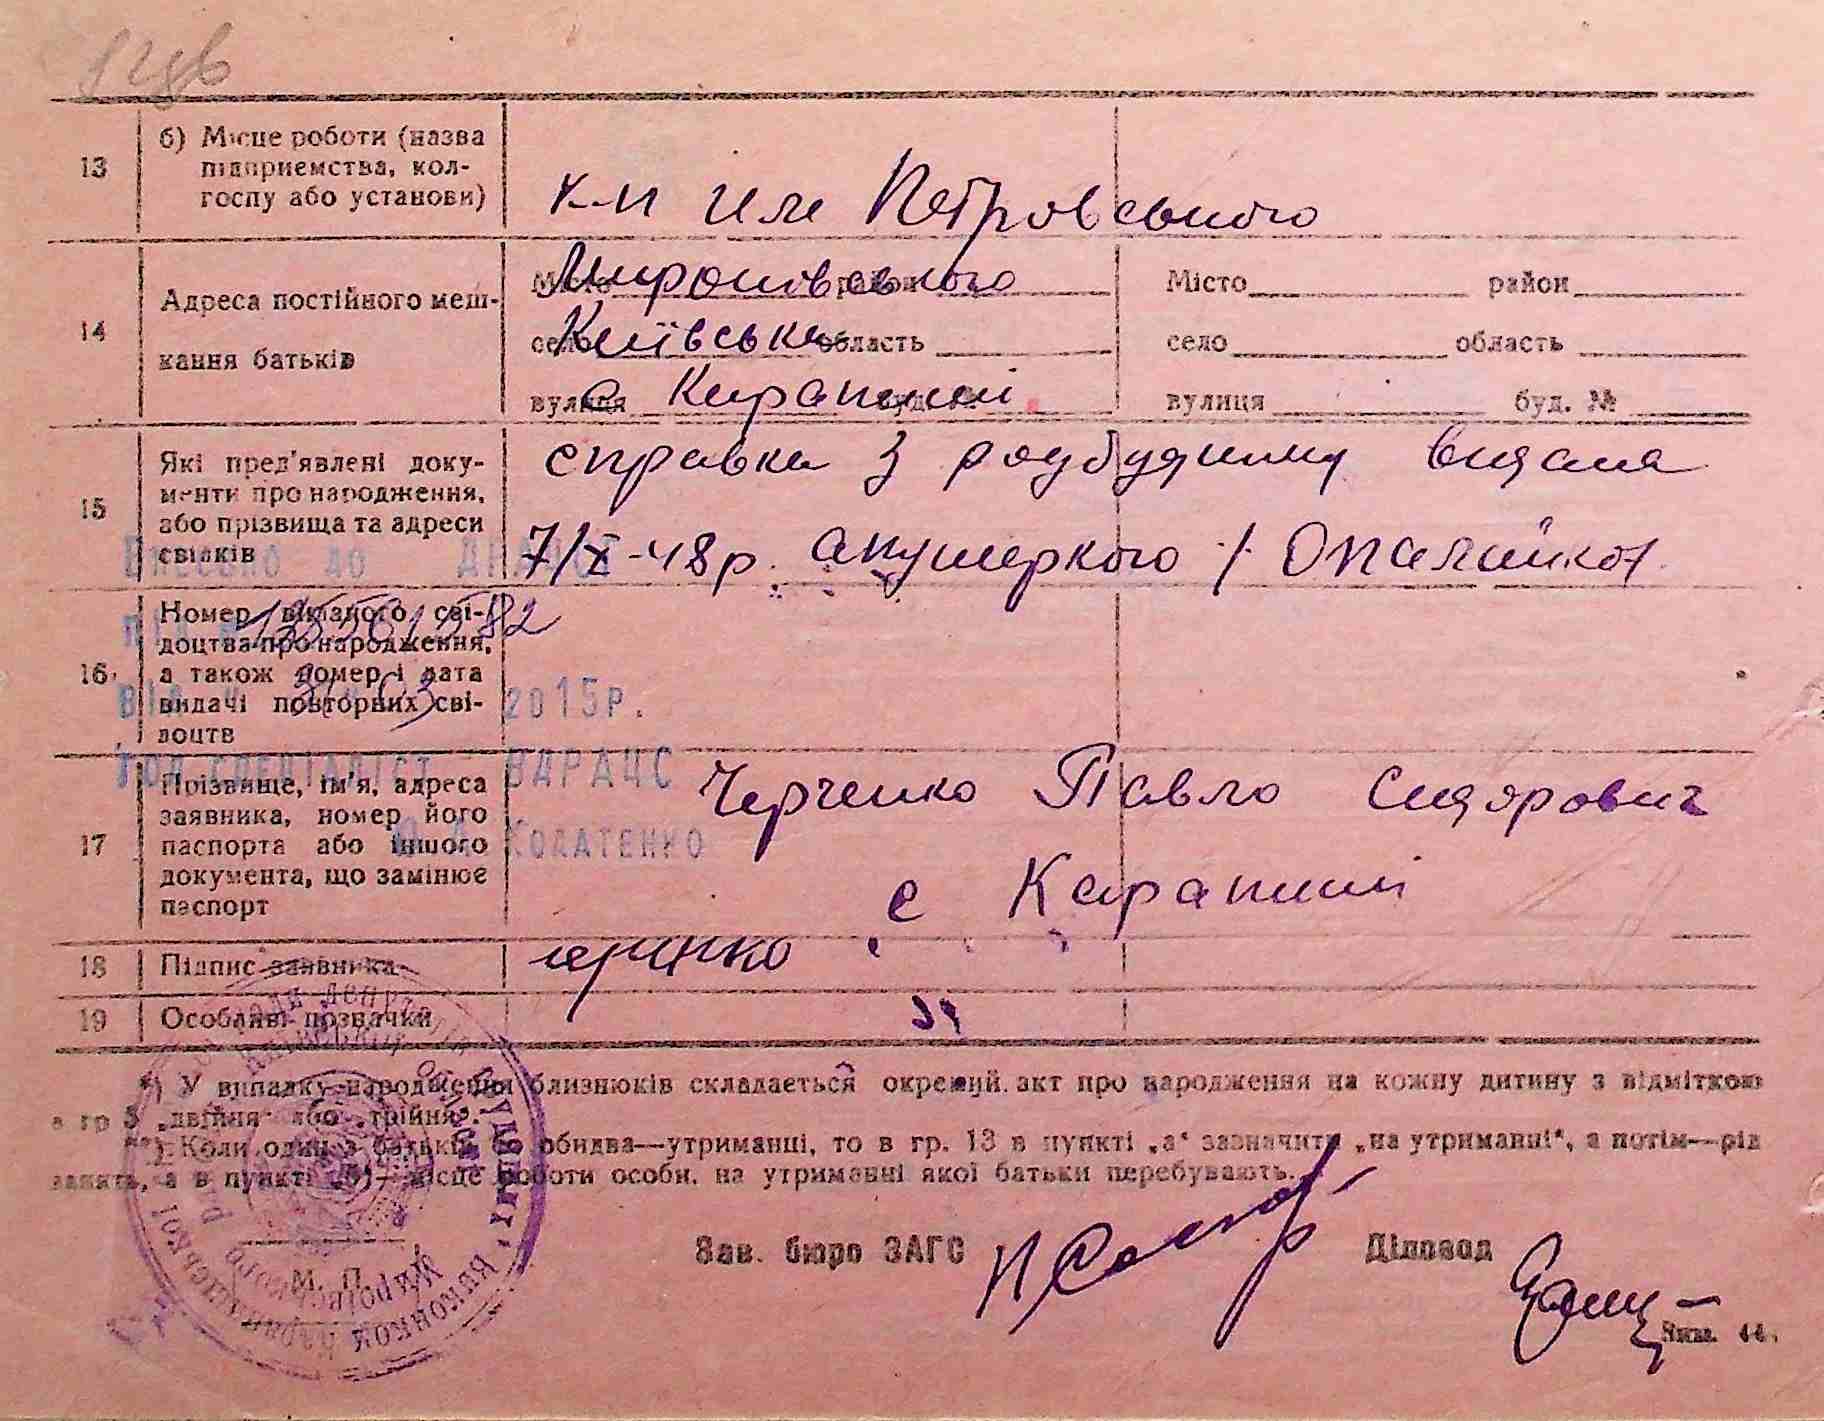 13
б) Місце роботи (назва
підприємства, кол-
госпу або установи)
к-п ім Петровського
14
Адреса постійного меш-
кання батьків
Місто район
Миронівського
село область
Київська
вулиця буд. №
с Карапиші
Місто район
село область
вулиця буд. №
15
Які пред'явлені доку-
менти про народження,
або прізвища та адреси
свідків
справка з родбудинку видана
7/X-48р. акушеркою / Опалайко/
Внесено до ДРАЦС
16
Номер виказного сві-
доцтва про народження,
а також номер і дата
видачі повторних сві-
доцтв
від " 31 " 03 2015р.
ВДРАЦС
17
Прізвище, ім'я, адреса
заявника, номер його
паспорта або іншого
документа, що замінює
паспорт
Черченко Павло Сидорович
с Карапиші
18
Підпис заявника
19
Особливі позначки
*) У випадку народження близнюків складається окремий акт про народження на кожну дитину з відміткою
в гр 5 „двійня" або „трійня".
**) Коли один з батьків або обидва—утриманці, то в гр. 13 в пункті „а" зазначити „на утриманні", а потім—рід
занять, а в пункті „б"—місце роботи особи, на утриманні якої батьки перебувають.
Зав. бюро ЗАГС
Діловод
М. П.
Зам. 44.